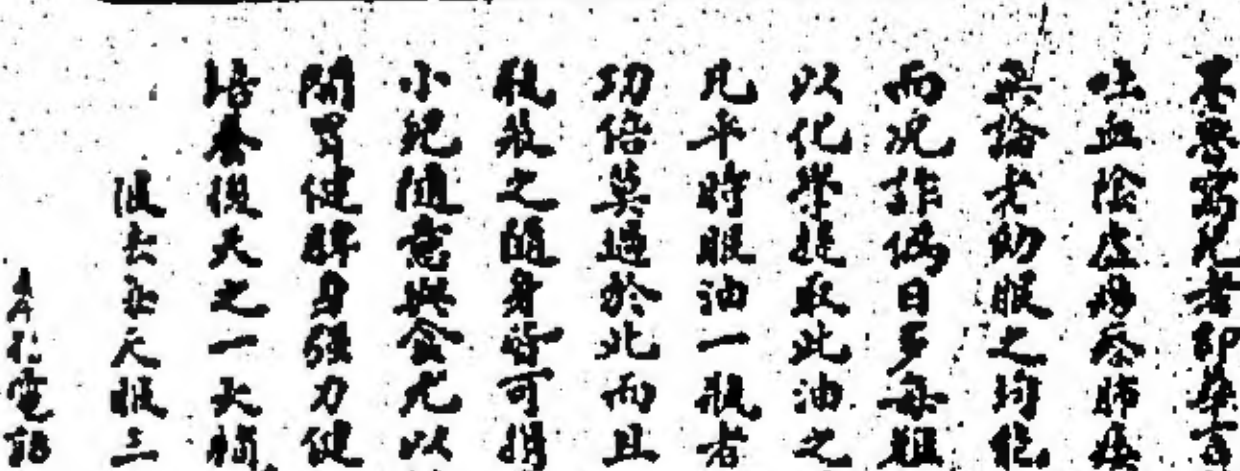 不與寫死者即華言
吐血陰虛癆瘵肺痿
無論老幼服之均能
而况詐偽日多每難
以化學提取此油之
凡平時服油一瓶者
功倍莫過於此而且
瓶裝之隨身皆可携
小兒隨意與食尤以
開胃健脾身強力健
培養後天之一大補
每天服三
電話